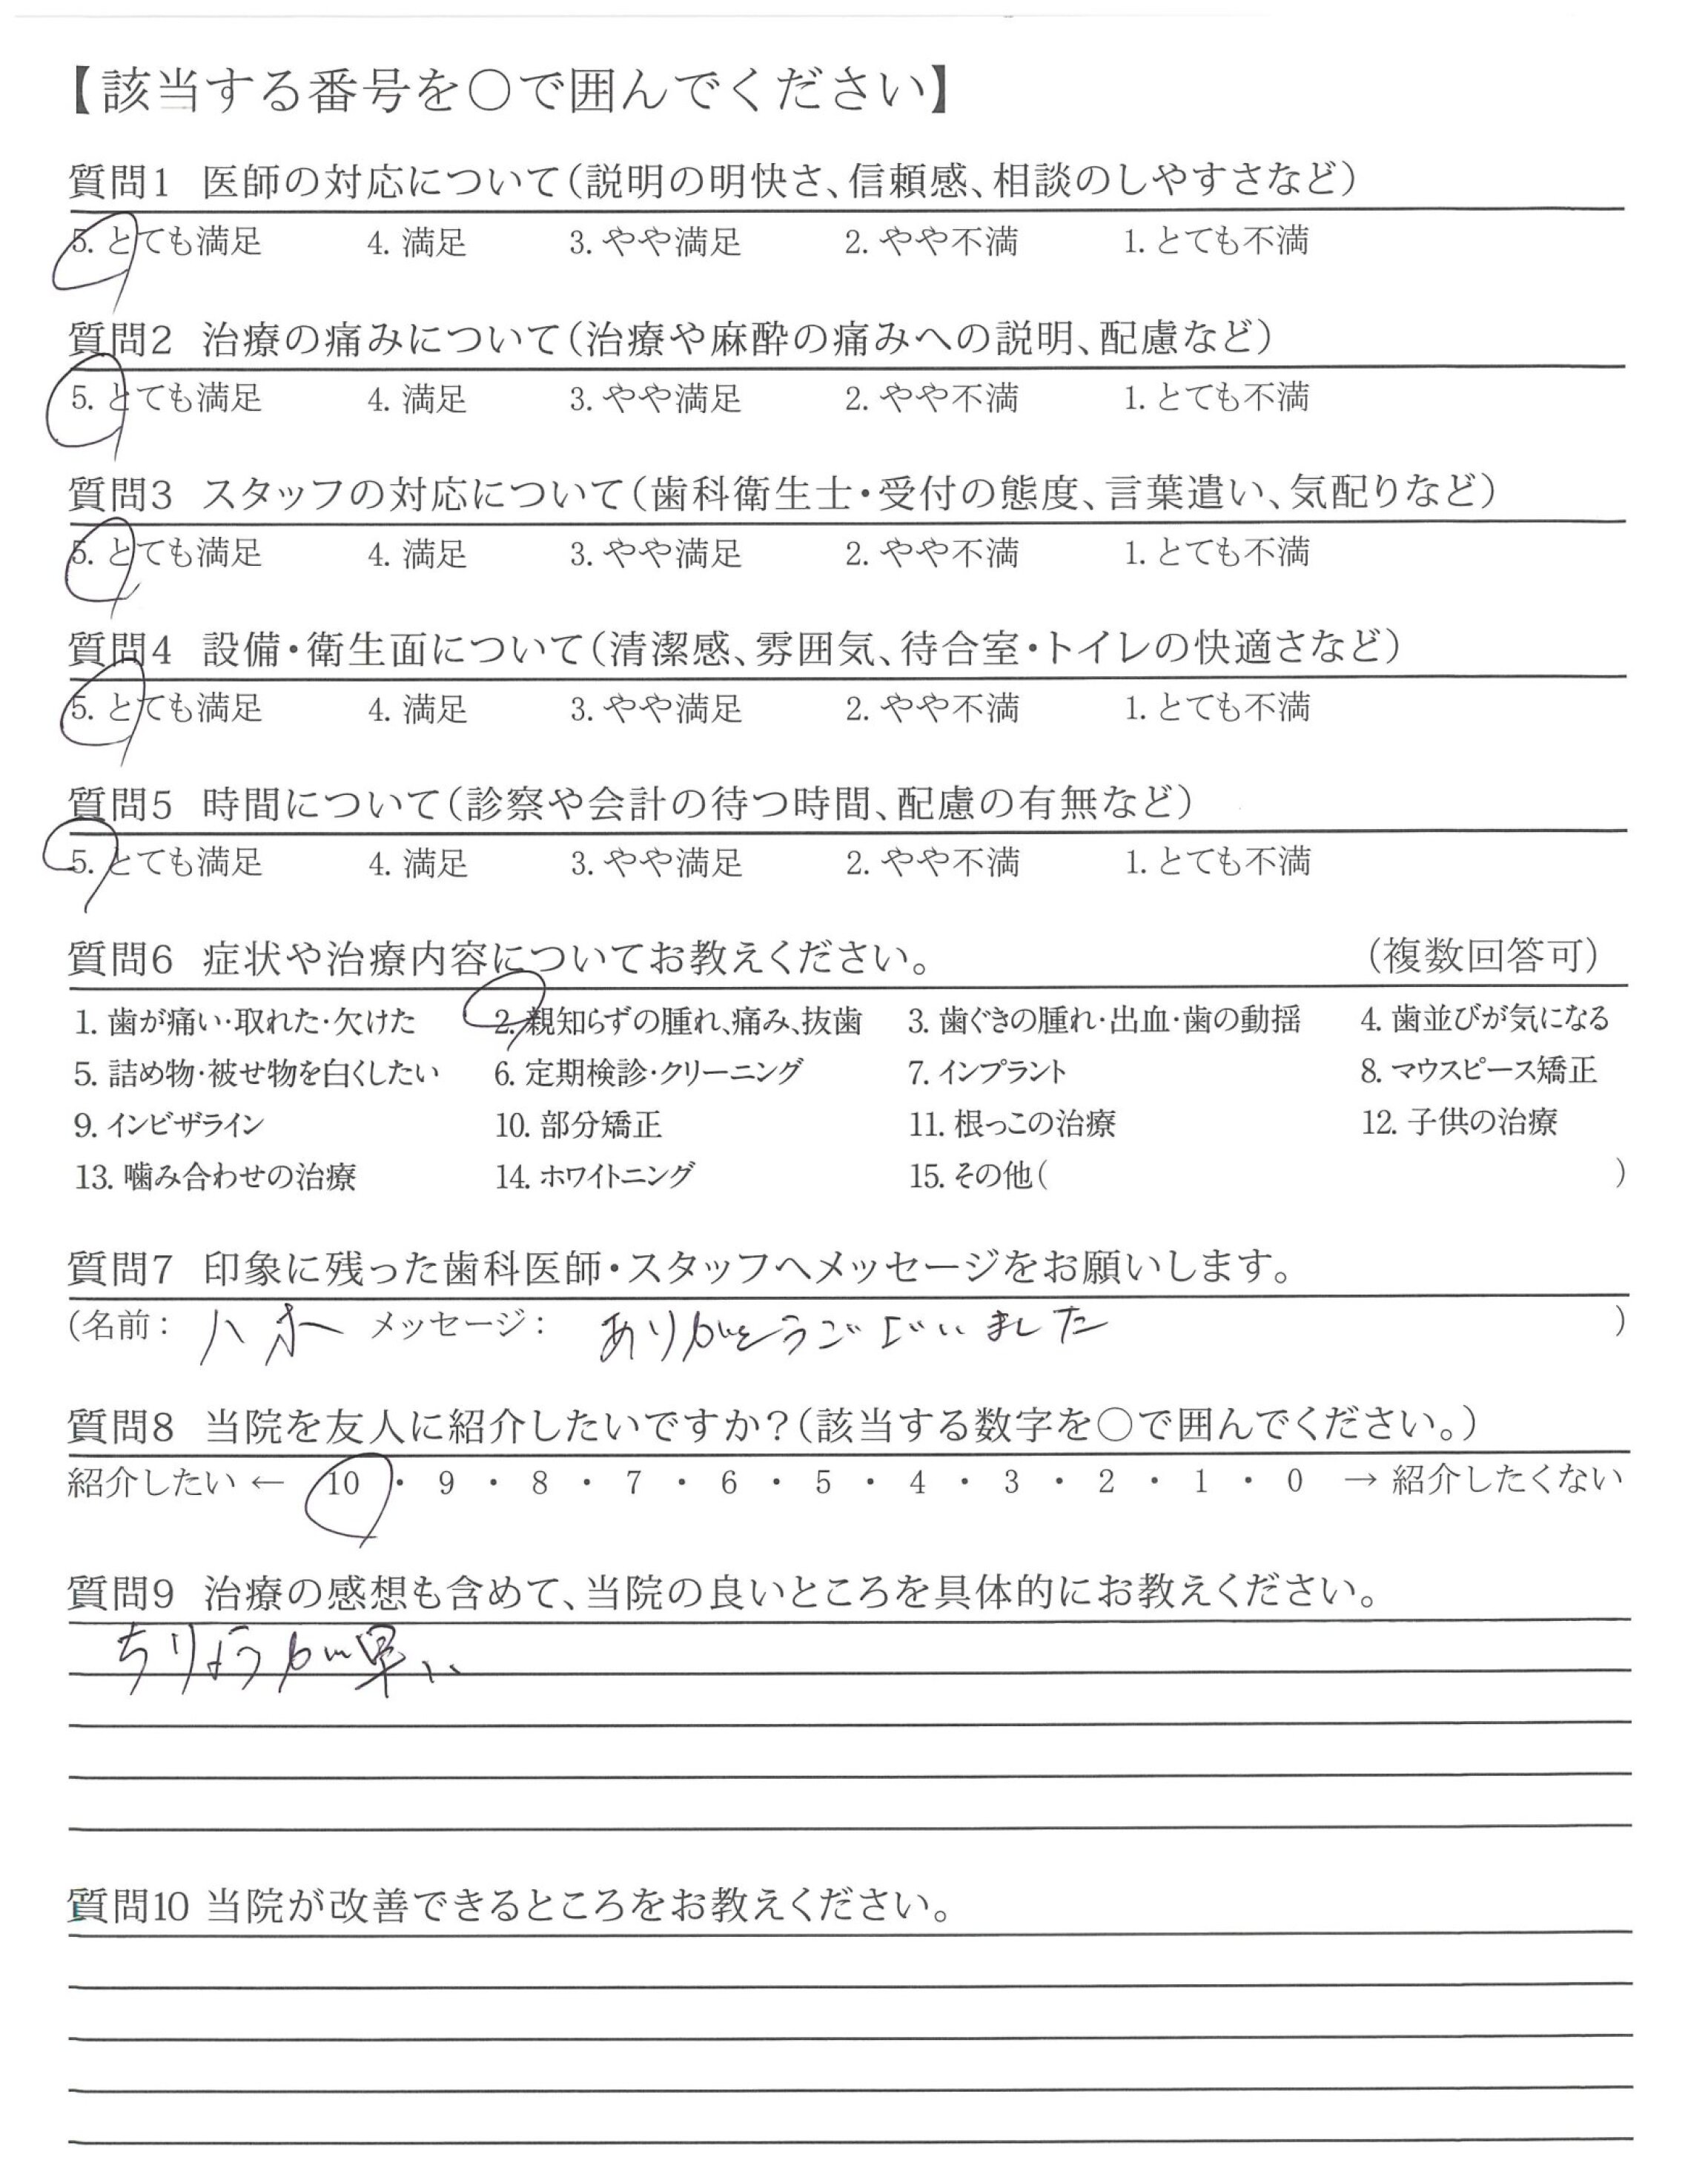 【該当する番号を○で囲んでください】
質問1 医師の対応について(説明の明快さ、信頼感、相談のしやすさなど)
5. とても満足 4. 満足 3. やや満足 2. やや不満 1. とても不満
質問2 治療の痛みについて(治療や麻酔の痛みへの説明、配慮など)
5. とても満足 4. 満足 3. やや満足 2. やや不満 1. とても不満
質問3 スタッフの対応について(歯科衛生士・受付の態度、言葉遣い、気配りなど)
5. とても満足 4. 満足 3. やや満足 2. やや不満 1. とても不満
質問4 設備・衛生面について(清潔感、雰囲気、待合室・トイレの快適さなど)
5. とても満足 4. 満足 3. やや満足 2. やや不満 1. とても不満
質問5 時間について(診察や会計の待つ時間、配慮の有無など)
5. とても満足 4. 満足 3. やや満足 2. やや不満 1. とても不満
質問6 症状や治療内容についてお教えください。 (複数回答可)
1. 歯が痛い・取れた・欠けた 2. 親知らずの腫れ、痛み、抜歯 3. 歯ぐきの腫れ・出血・歯の動揺 4. 歯並びが気になる
5. 詰め物・被せ物を白くしたい 6. 定期検診・クリーニング 7. インプラント 8. マウスピース矯正
9. インビザライン 10. 部分矯正 11. 根っこの治療 12. 子供の治療
13. 噛み合わせの治療 14. ホワイトニング 15. その他( )
質問7 印象に残った歯科医師・スタッフへメッセージをお願いします。
(名前: 八木 メッセージ: ありがとうございました )
質問8 当院を友人に紹介したいですか?(該当する数字を○で囲んでください。)
紹介したい ← 10 ・ 9 ・ 8 ・ 7 ・ 6 ・ 5 ・ 4 ・ 3 ・ 2 ・ 1 ・ 0 → 紹介したくない
質問9 治療の感想も含めて、当院の良いところを具体的にお教えください。
ちりょうが早い
質問10 当院が改善できるところをお教えください。